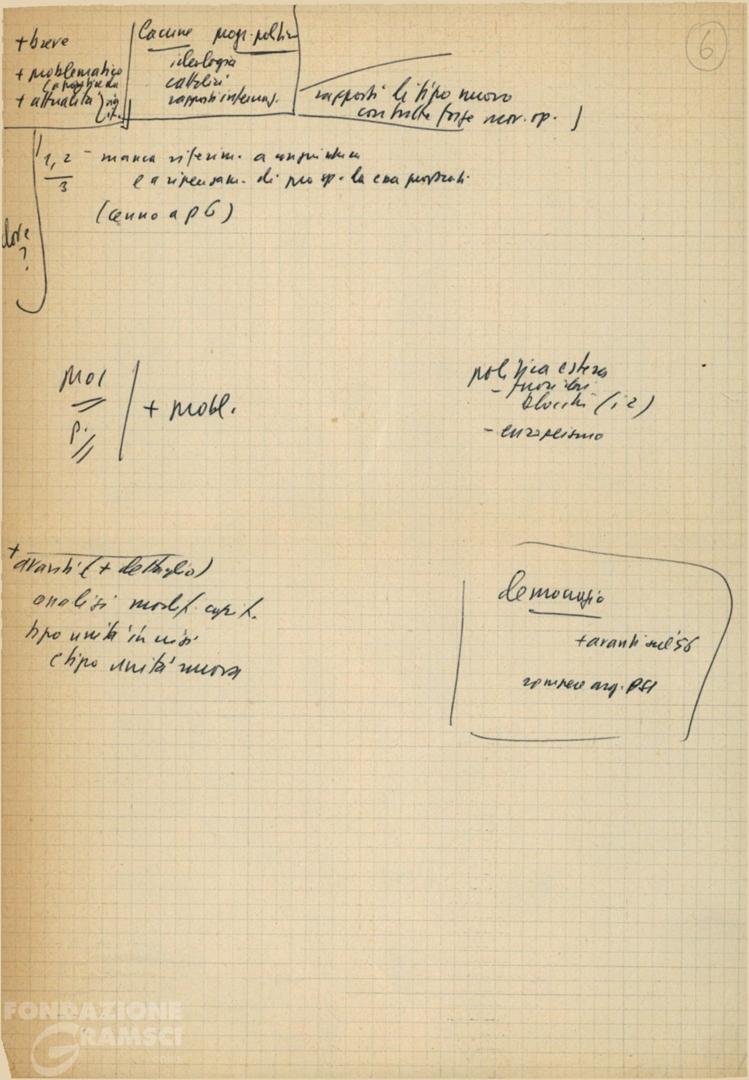 6
+ breve
+ problematico
+ attualità
Lacune progr. politico
ideologia
cattolici
rapporti internaz.
rapporti di tipo nuovo
con tutte forze mov. op.
1, 2 - manca riferim. a
3
e a ripensam. di
(cenno a p 6)
dove
?
+ probl.
p.
politica estera
- fuori dai
blocchi (i 2)
- europeismo
+
avanti (+ dettaglio)
analisi modif. capit.
tipo unità in crisi
e tipo unità nuova
democrazia
+ avanti sul '56
PSI
FONDAZIONE
GRAMSCI